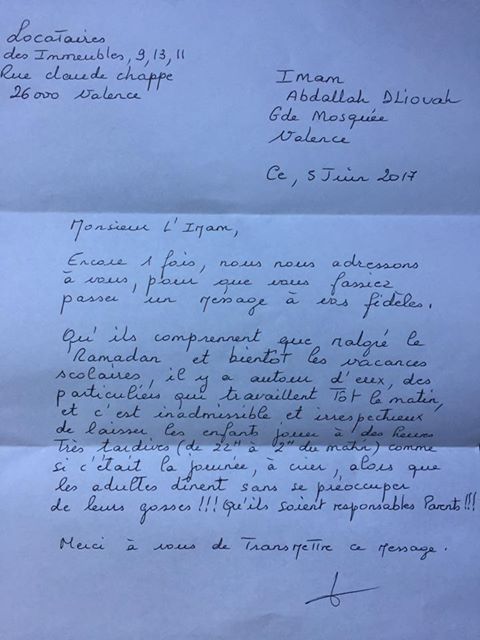 Locataires
des Immeubles, 9, 13, 11
Rue claude chappe
26000 Valence
Imam
Abdallah DLIOUAH
Gde Mosquée
Valence
Ce, 5 Juin 2017
Monsieur L'Imam,
Encore 1 fois, nous nous adressons
à vous, pour que vous fassiez
passer un message à vos fidèles.
Qu'ils comprennent que malgré le
Ramadan et bientôt les vacances
scolaires, il y a autour d'eux, des
particuliers qui travaillent Tôt le matin,
et c'est inadmissible et irrespectueux
de laisser les enfants jouer à des heures
Très tardives (de 22H à 2H du matin) comme
si c'était la journée, à crier, alors que
les adultes dînent sans se préoccuper
de leurs gosses!!! (Qu'ils soient responsables Parents!!!
Merci à vous de Transmettre ce message.